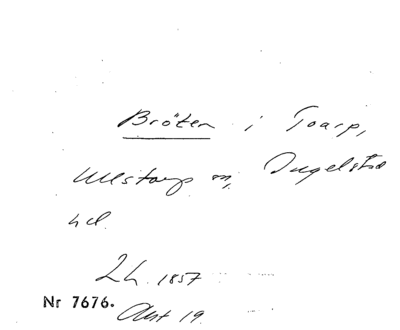 Bröten i Toarp,
Ullstorp sn, Ingelstad
hd.
Lh. 1857
Nr 7676.
Akt 19.